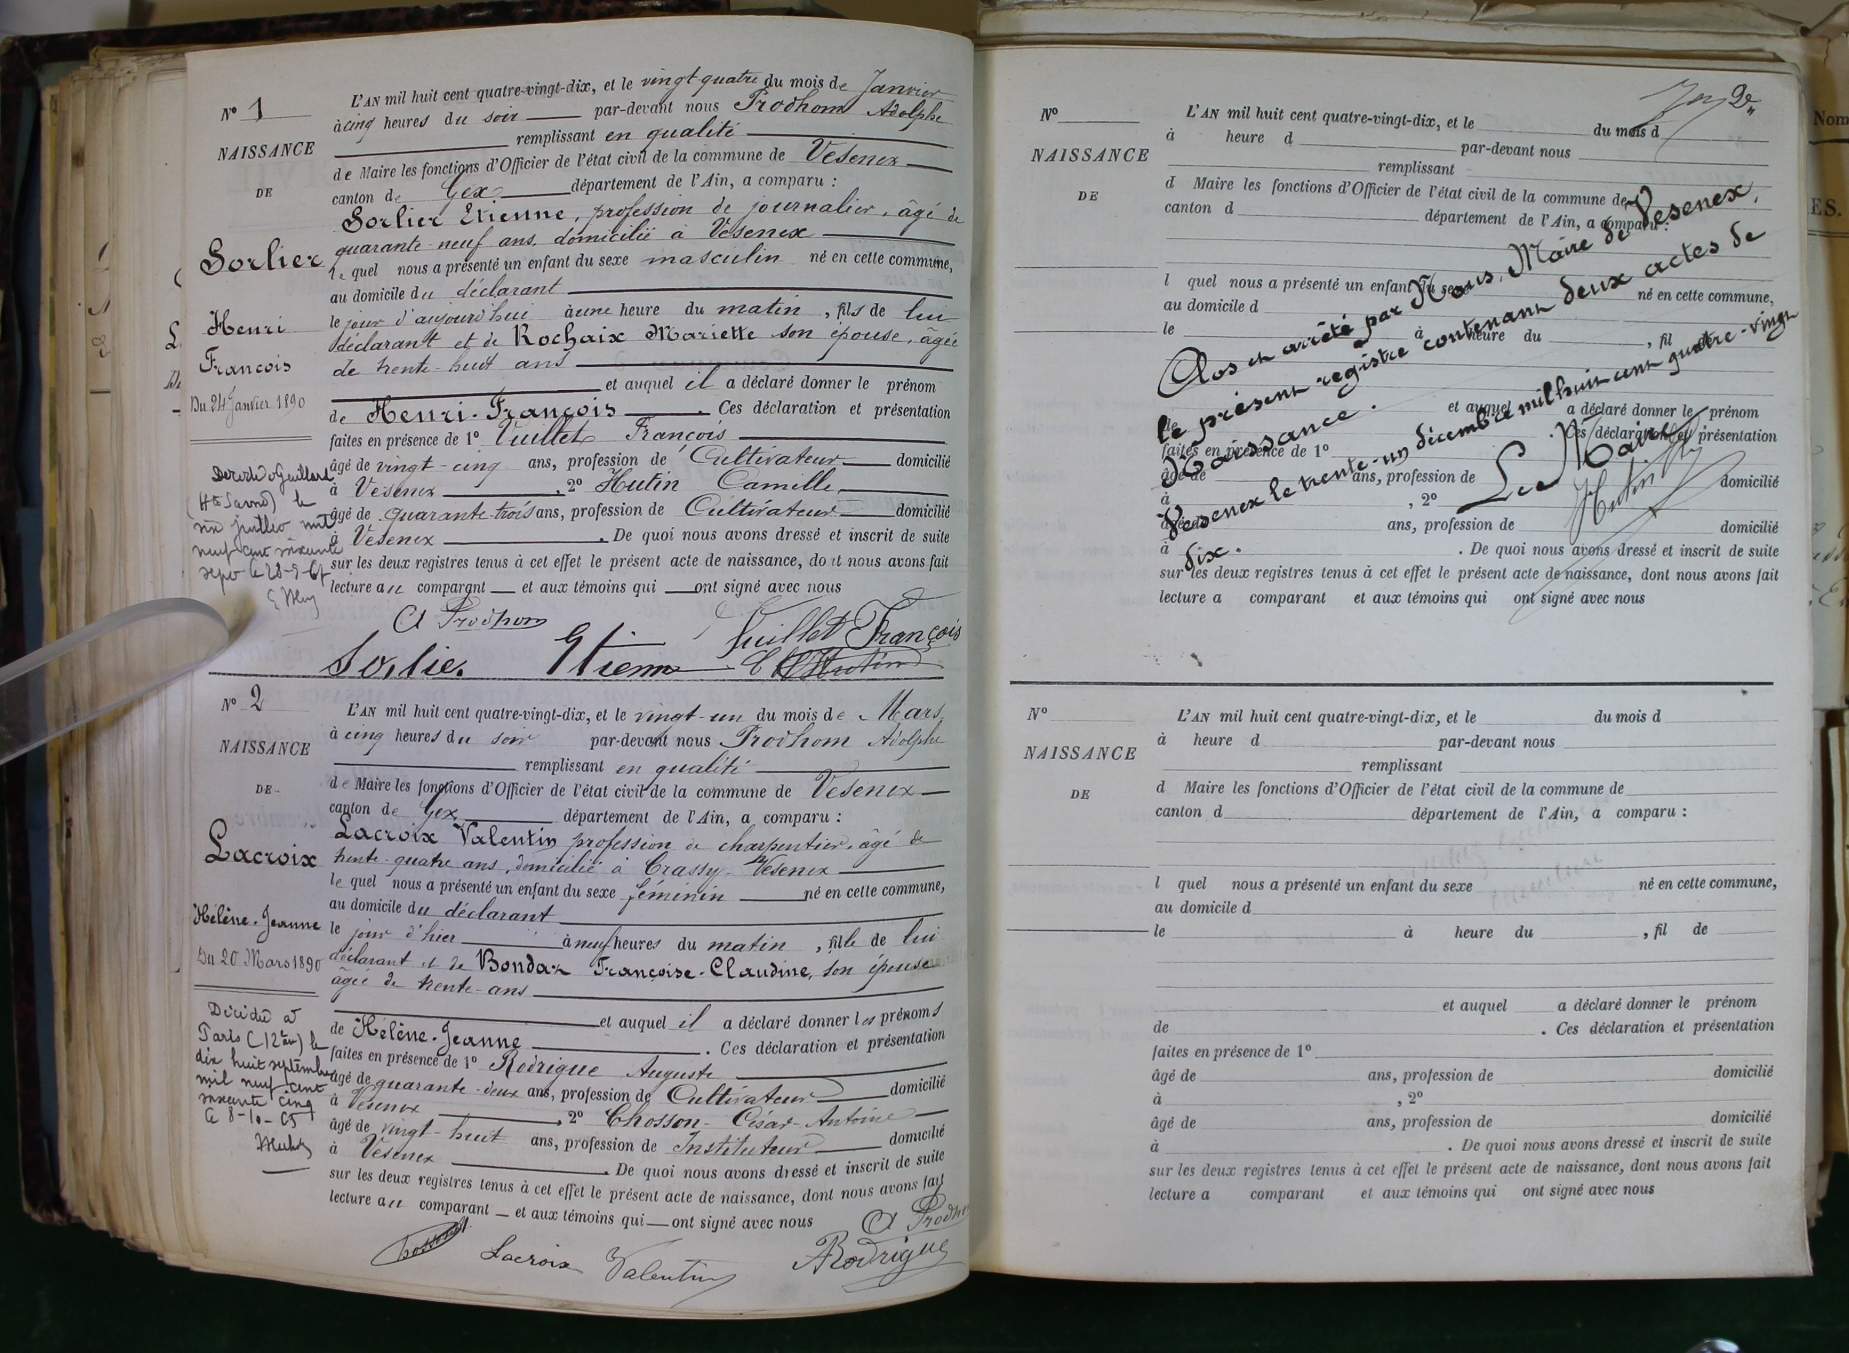 L'AN mil huit cent quatre-vingt-dix, et le vingt-quatre du mois de Janvier
N° 1
à cinq heures du soir par-devant nous Prodhom Adolphe
remplissant en qualité
NAISSANCE
de Maire les fonctions d'Officier de l'état civil de la commune de Vesenex
DE
canton de Gex département de l'Ain, a comparu :
Sorlier Etienne, profession de journalier, âgé de
quarante-neuf ans, domicilié à Vesenex
Sorlier
le quel nous a présenté un enfant du sexe masculin né en cette commune,
au domicile du déclarant
Henri
le jour d'aujourd'hui à une heure du matin, fils de lui
déclarant et de Rochaix Mariette son épouse, âgée
François
de trente-huit ans
et auquel il a déclaré donner le prénom
Du 24 Janvier 1890
de Henri-François. Ces déclaration et présentation
faites en présence de 1° Vuillet François
âgé de vingt-cinq ans, profession de Cultivateur domicilié
à Vesenex, 2° Hutin Camille
âgé de quarante-trois ans, profession de Cultivateur domicilié
à Vesenex. De quoi nous avons dressé et inscrit de suite
sur les deux registres tenus à cet effet le présent acte de naissance, dont nous avons fait
lecture au comparant et aux témoins qui ont signé avec nous
Décédé à Gaillard
(Hte Savoie) le
juillet mil
neuf cent soixante
sept
A Prodhom
Vuillet François
Sorlier Etienne
C Hutin
N° 2
L'AN mil huit cent quatre-vingt-dix, et le vingt-un du mois de Mars
à cinq heures du soir par-devant nous Prodhom Adolphe
NAISSANCE
remplissant en qualité
de Maire les fonctions d'Officier de l'état civil de la commune de Vesenex
DE
canton de Gex département de l'Ain, a comparu :
Lacroix Valentin profession de charpentier, âgé de
Lacroix
trente-quatre ans, domicilié à Crassy-Vesenex
le quel nous a présenté un enfant du sexe féminin né en cette commune,
au domicile du déclarant
Hélène-Jeanne
le jour d'hier à neuf heures du matin, fille de lui
déclarant et de Bondaz Françoise-Claudine, son épouse
Du 20 Mars 1890
âgée de trente-ans
et auquel il a déclaré donner les prénoms
de Hélène-Jeanne. Ces déclaration et présentation
faites en présence de 1° Rodrigue Auguste
âgé de quarante-deux ans, profession de Cultivateur domicilié
à Vesenex, 2° Chosson-César-Antoine
âgé de vingt-huit ans, profession de Instituteur domicilié
à Vesenex. De quoi nous avons dressé et inscrit de suite
sur les deux registres tenus à cet effet le présent acte de naissance, dont nous avons fait
lecture au comparant et aux témoins qui ont signé avec nous
Décédée à
Paris (12ème) le
dix huit septembre
mil neuf cent
soixante cinq
le 8-10-65
A Prodhom
Chosson
Lacroix Valentin
ARodrigue
2e
N°
L'AN mil huit cent quatre-vingt-dix, et le du mois d
à heure d par-devant nous
NAISSANCE
remplissant
d Maire les fonctions d'Officier de l'état civil de la commune de
DE
canton d département de l'Ain, a comparu :
l quel nous a présenté un enfant du sexe né en cette commune,
au domicile d
le à heure du , fil
et auquel a déclaré donner le prénom
de . Ces déclaration et présentation
faites en présence de 1°
âgé de ans, profession de domicilié
à , 2°
âgé de ans, profession de domicilié
à . De quoi nous avons dressé et inscrit de suite
sur les deux registres tenus à cet effet le présent acte de naissance, dont nous avons fait
lecture a comparant et aux témoins qui ont signé avec nous
Clos et arrêté par Nous, Maire de Vesenex,
le présent registre contenant deux actes de
Naissance.
Vesenex le trente-un décembre mil huit cent quatre-vingt
dix.
Le Maire
Hutin
N°
L'AN mil huit cent quatre-vingt-dix, et le du mois d
à heure d par-devant nous
NAISSANCE
remplissant
d Maire les fonctions d'Officier de l'état civil de la commune de
DE
canton d département de l'Ain, a comparu :
l quel nous a présenté un enfant du sexe né en cette commune,
au domicile d
le à heure du , fil de
et auquel a déclaré donner le prénom
de . Ces déclaration et présentation
faites en présence de 1°
âgé de ans, profession de domicilié
à , 2°
âgé de ans, profession de domicilié
à . De quoi nous avons dressé et inscrit de suite
sur les deux registres tenus à cet effet le présent acte de naissance, dont nous avons fait
lecture a comparant et aux témoins qui ont signé avec nous
Nom
ES.